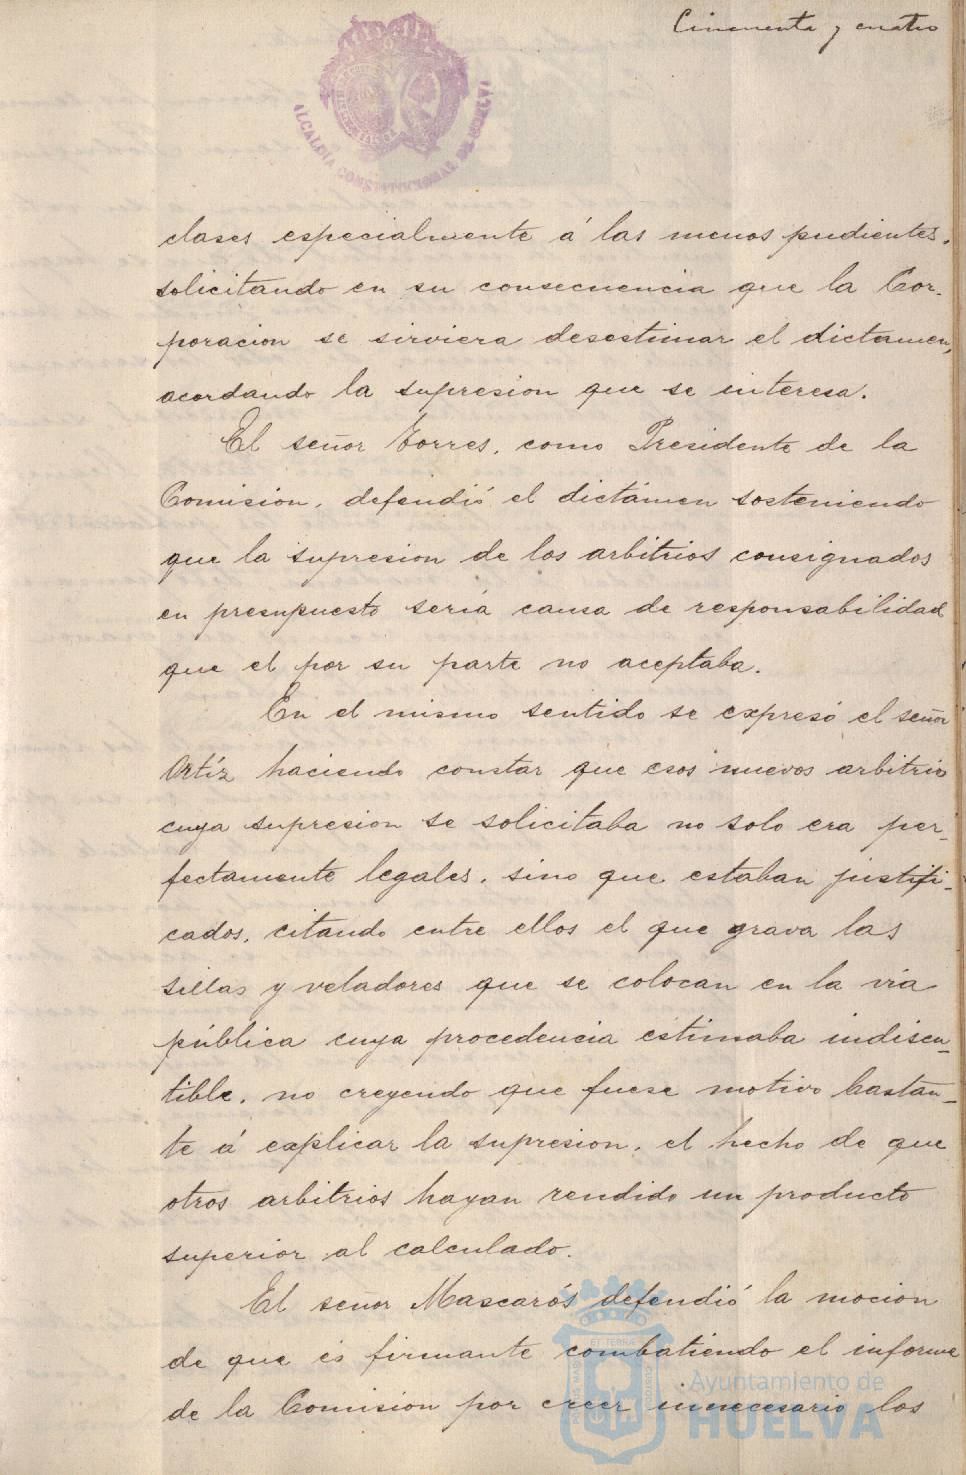 Cincuenta y cuatro
ALCALDIA CONSTITUCIONAL DE HUELVA
clases especialmente á las menos pudientes,
solicitando en su consecuencia que la Cor-
poracion se sirviera desestimar el dictamen,
acordando la supresion que se interesa.
El señor Torres, como Presidente de la
Comision, defendió el dictámen sosteniendo
que la supresion de los arbitrios consignados
en presupuesto sería causa de responsabilidad
que el por su parte no aceptaba.
En el mismo sentido se expresó el señor
Ortíz haciendo constar que esos nuevos arbitrios
cuya supresion se solicitaba no solo era per-
fectamente legales, sino que estaban justifi-
cados, citando entre ellos el que grava las
sillas y veladores que se colocan en la vía
pública cuya procedencia estimaba indiscu-
tible, no creyendo que fuese motivo bastan-
te á explicar la supresion, el hecho de que
otros arbitrios hayan rendido un producto
superior al calculado.
El señor Mascarós defendió la mocion
de que es firmante combatiendo el informe
de la Comision por creer innecesario los
Ayuntamiento de
HUELVA